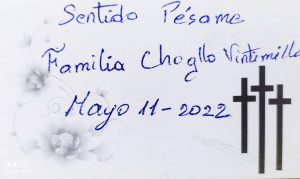 Sentido Pésame
Familia Chogllo Vintimilla
Mayo 11-2022